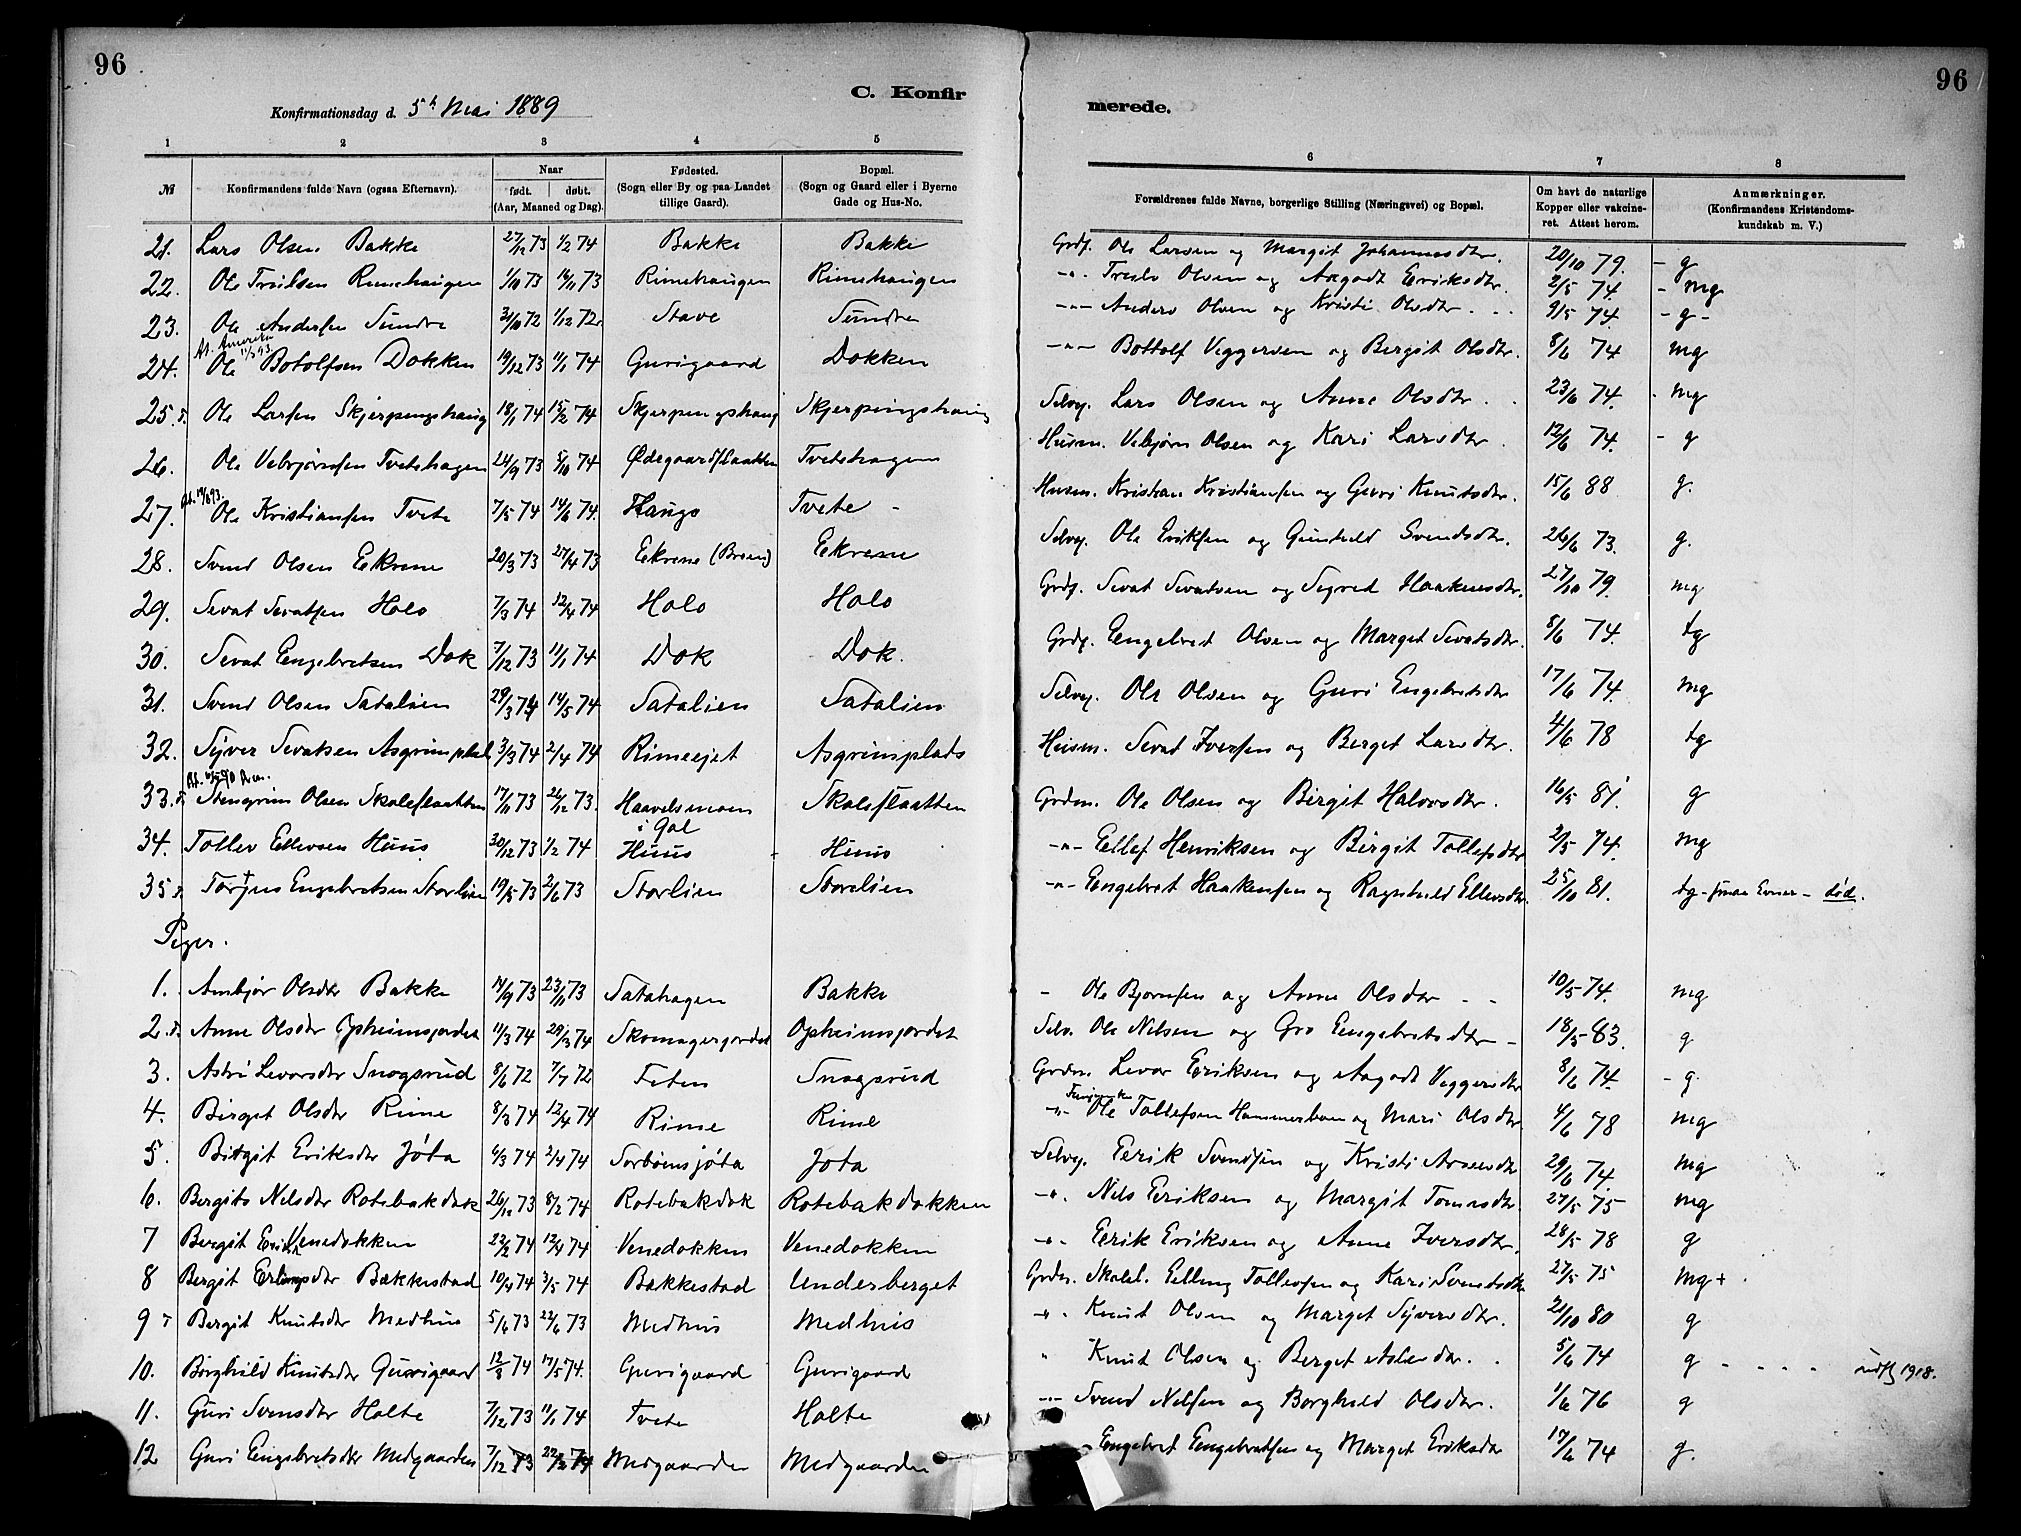 96
96
C. Konfir
merede.
Konfirmationsdag d. 5t Mai 1889
1 2 3 4 5 6 7 8
№ Konfirmandens fulde Navn (ogsaa Efternavn). Naar født. døbt. (Aar, Maaned og Dag). Fødested. (Sogn eller By og paa Landet tillige Gaard). Bopæl. (Sogn og Gaard eller i Byerne Gade og Hus-No. Forældrenes fulde Navne, borgerlige Stilling (Næringsvei) og Bopæl. Om havt de naturlige Kopper eller vakcineret. Attest herom. Anmærkninger. (Konfirmandens Kristendomskundskab m. V.)
21. Lars Olsen Bakke 27/12 73 1/2 74 Bakke Bakke Grdf. Ole Larsen og Margit Johannesdtr. 20/10 79. - g
22. Ole Troilsen Rimehaugen 1/10 73 16/11 73 Rimehaugen Rimehaugen -"- Olsen og Aagodt Eriksdtr. 2/5 74. - mg
23. Ole Andersen Sundre 31/10 72 1/12 72 Stave Sundre -"- Anders Olsen og Kristi Olsdtr. 9/5 74. - g -
At. Amerika
24. Ole Botolfsen Dokken 19/12 73 11/1 74 Gurigaard Dokken -"- Bottolf Veggersen og Bergit Olsdtr. 8/6 74 mg
25. Ole Larsen Skjerpingshaug 18/1 74 15/2 74 Skjerpingshaug Skjerpingshaug Selvej. Lars Olsen og Anne Olsdtr. 23/6 74. mg
26. Ole Vebjørnsen Tvetehagen 24/9 73 5/10 74 Ødegaardslaatten Tvetehagen Husm. Vebjørn Olsen og Kari Larsdtr. 12/6 74. - g
27. Ole Kristiansen Tvete 7/5 74 14/6 74. Haugo Tvete - Husm. Kristian Kristiansen og Guri Knutsdtr. 15/6 88 g.
28. Svend Olsen Eekrene 20/3 73 27/4 73 Eekrene (Breie) Eekrene Selvej. Ole Eriksen og Gunhild Svendsdtr. 26/6 73. g.
29. Sevat Sevatsen Holo 7/3 74 12/4 74 Holo Holo Grdf. Sevat Sevatsen og Sigrid Haakensdtr. 27/10 79. mg
30. Sevat Engebretsen Dok 7/12 73 11/1 74 Dok Dok. Grdf. Eengebret Olsen og Marget Sevatsdtr. 8/6 74. tg
31. Svend Olsen Satalien 29/3 74 14/5 74 Satalien Satalien Selvej. Ole Olsen og Guri Engebretsdtr 17/6 74. mg
32. Syver Sevatsen Asgrimplads 3/3 74 2/4 74 Rimeejet Asgrimplads Husm. Sevat Iversen og Berget Larsdtr. 4/6 78 tg
33. Stengrim Olsen Skoleslaatten 17/11 73 26/12 73. Haavelsmoen i Gol Skoleslaatten Grdm. Ole Olsen og Birgit Halvorsdtr. 16/5 81. g
34. Tollev Ellevsen Huus 30/12 73 1/2 74 Huus Huus -"- Ellef Henriksen og Birgit Tollefsdtr 2/5 74. mg
35. Torjus Engebretsen Storlien 19/5 73 2/6 73 Storlien Storelien -"- Eengebret Haakensen og Ragnhild Ellevsdtr. 25/10 81. tg - smaa Evner - død.
Piger.
1. Ambjør Olsdtr Bakke 14/9 73 23/11 73 Satahagen Bakke - Ole Bjørnsen og Anne Olsdtr 10/5 74. mg
2. Anne Olsdtr Opheimsjordet 11/3 74 29/3 74 Skomagerjordet Opheimsjordet Selv. Ole Nilsen og Gro Eengebretsdtr - 18/5 83. g
3. Astri Levorsdtr Snogsrud 8/6 72 7/7 72 Feten Snogsrud Grdm. Levor Eriksen og Aagodt Veggersdtr 8/6 74. - g.
4. Birget Olsdtr Rime 8/3 74 12/4 74 Rime Rime -"- Ole Tollefsen Hammersboen og Mari Olsdtr 4/6 78 mg
5. Birgit Eriksdtr Jøta 6/3 74 2/4 74 Sorboensjøta Jøta Selvej. Eerik Svendsen og Kristi Arnesdtr 29/6 74. mg
6. Bergit Nelsdtr Rotebakdok 26/12 73 8/2 74 Rotebakdok Rotebakdokken -"- Nels Eriksen og Margit Tomasdtr 27/5 75 mg
7 Bergit Eriksd. Venedokken 22/2 74 12/4 74 Venedokken Venedokken -"- Eerik Eriksen og Anne Iversdtr. 28/5 78 g
8 Bergit Erlingsdtr Bækkestad 10/4 74 3/5 74 Bækkestad Underberget Grdm. Skolel. Elling Tollevsen og Kari Svendsdtr 27/5 75 mg +
9 Bergit Knutsdtr Medhus 5/6 73 22/6 73 Medhus Medhus -"- Knut Olsen og Marget Syversdtr. 21/10 80 g
10. Borghild Knutsdtr Gurigaard 12/3 74 17/5 74. Gurigaard Gurigaard " Knud Olsen og Berget Aslesdtr. 5/6 74 g - - - - udst 1918.
11. Guri Svensdtr Holte 7/12 73 11/1 74 Tvete Holte -"- Svend Nelsen og Borghild Olsdtr. 1/6 76 g
12 Guri Engebretsdtr Medgaarden 7/12 73 22/2 74 Medgaarden Medgaarden - Engebret Engebretsen og Marget Eriksdtr 17/6 74 g.